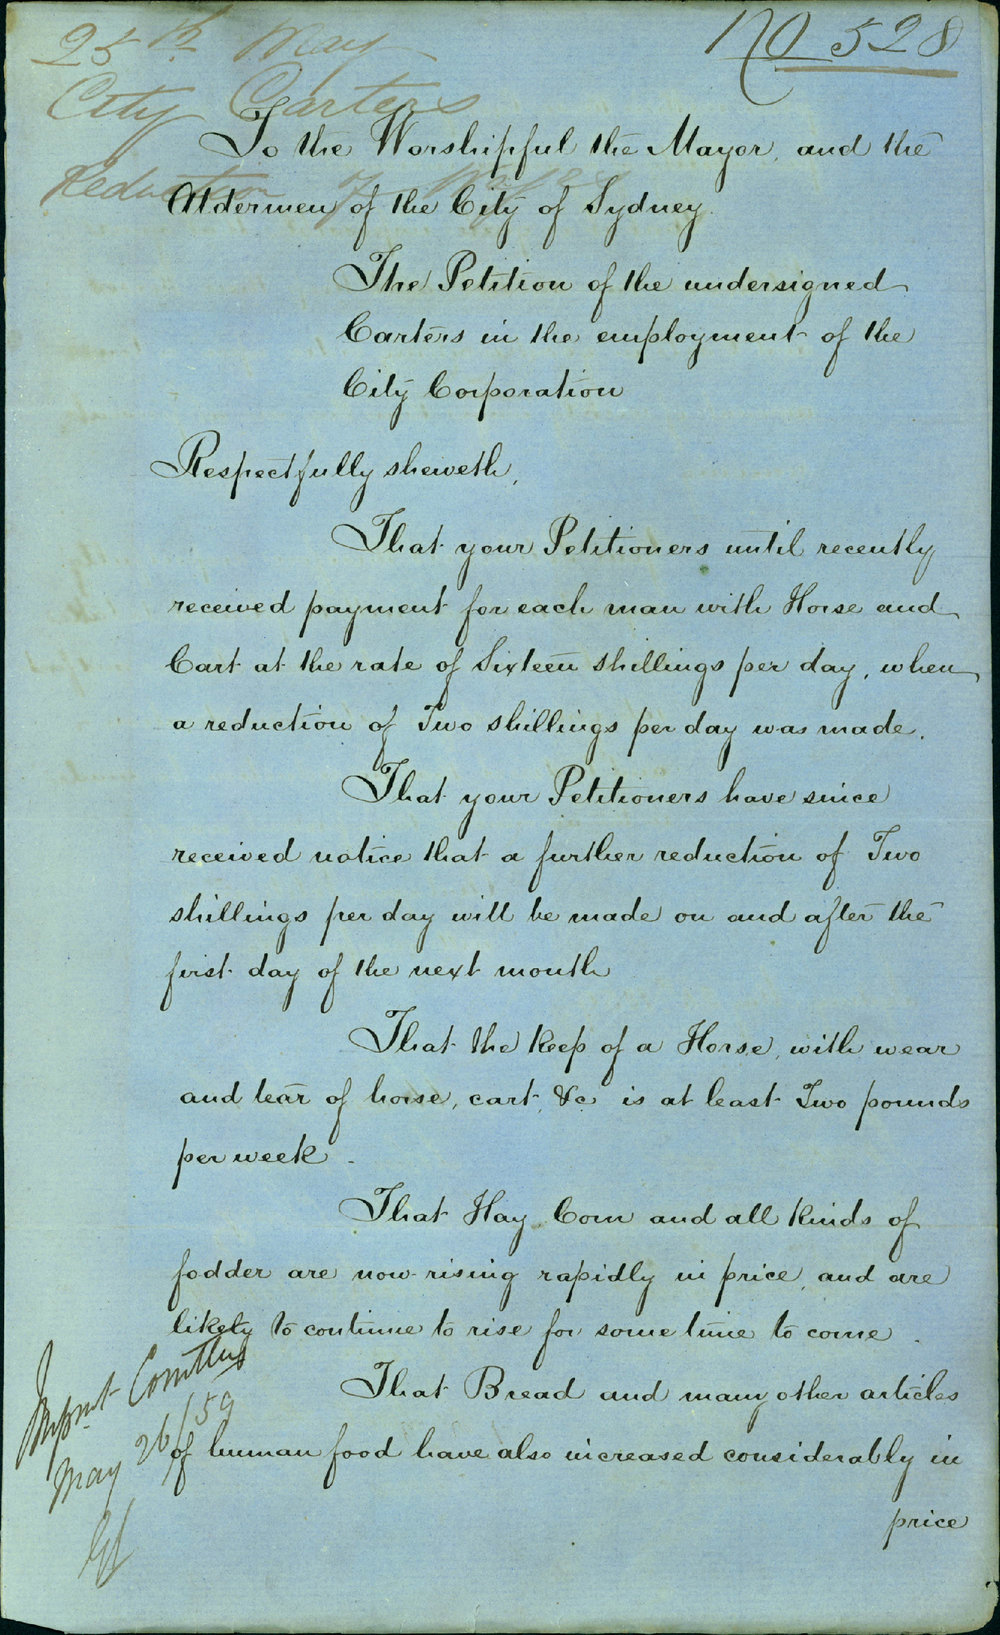 25th May
No 528
City Carters
Reduction of Wages
To the Worshipful the Mayor, and the
Aldermen of the City of Sydney.
The Petition of the undersigned
Carters in the employment of the
City Corporation
Respectfully sheweth,
That your Petitioners until recently
received payment for each man with Horse and
Cart at the rate of Sixteen shillings per day, when
a reduction of Two shillings per day was made.
That your Petitioners have since
received notice that a further reduction of Two
shillings per day will be made on and after the
first day of the next month
That the keep of a Horse, with wear
and tear of horse, cart, &c is at least Two pounds
per week.
That Hay Corn and all kinds of
fodder are now rising rapidly in price, and are
likely to continue to rise for some time to come.
That Bread and many other articles
of human food have also increased considerably in
price
Impmt Comttee
May 26/59